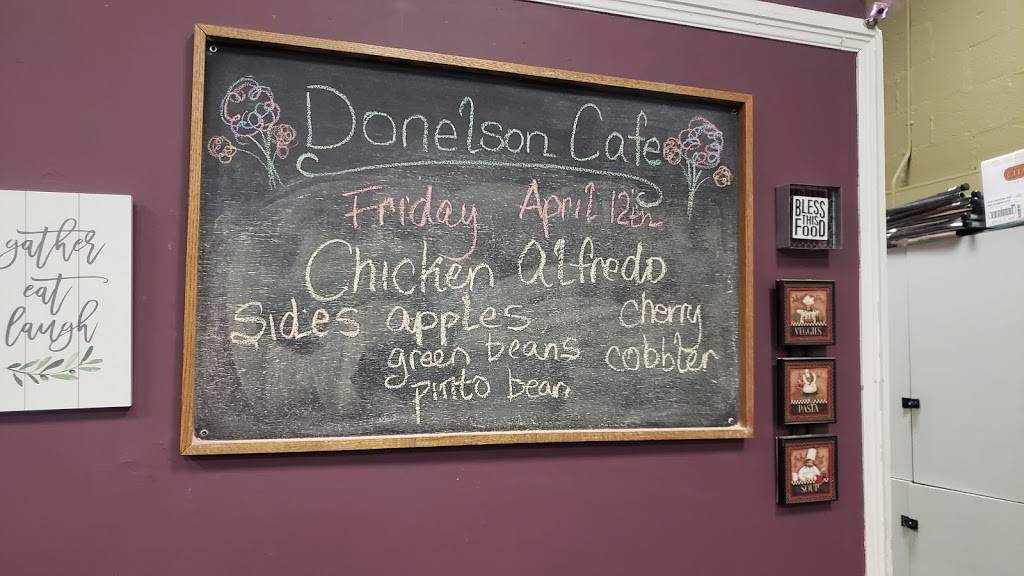 Donelson Cafe
Friday April 12th
Chicken Alfredo
Sides apples cherry
green beans cobbler
pinto bean
gather
eat
laugh
BLESS
THIS
FOOD
VEGGIES
PASTA
SOUP